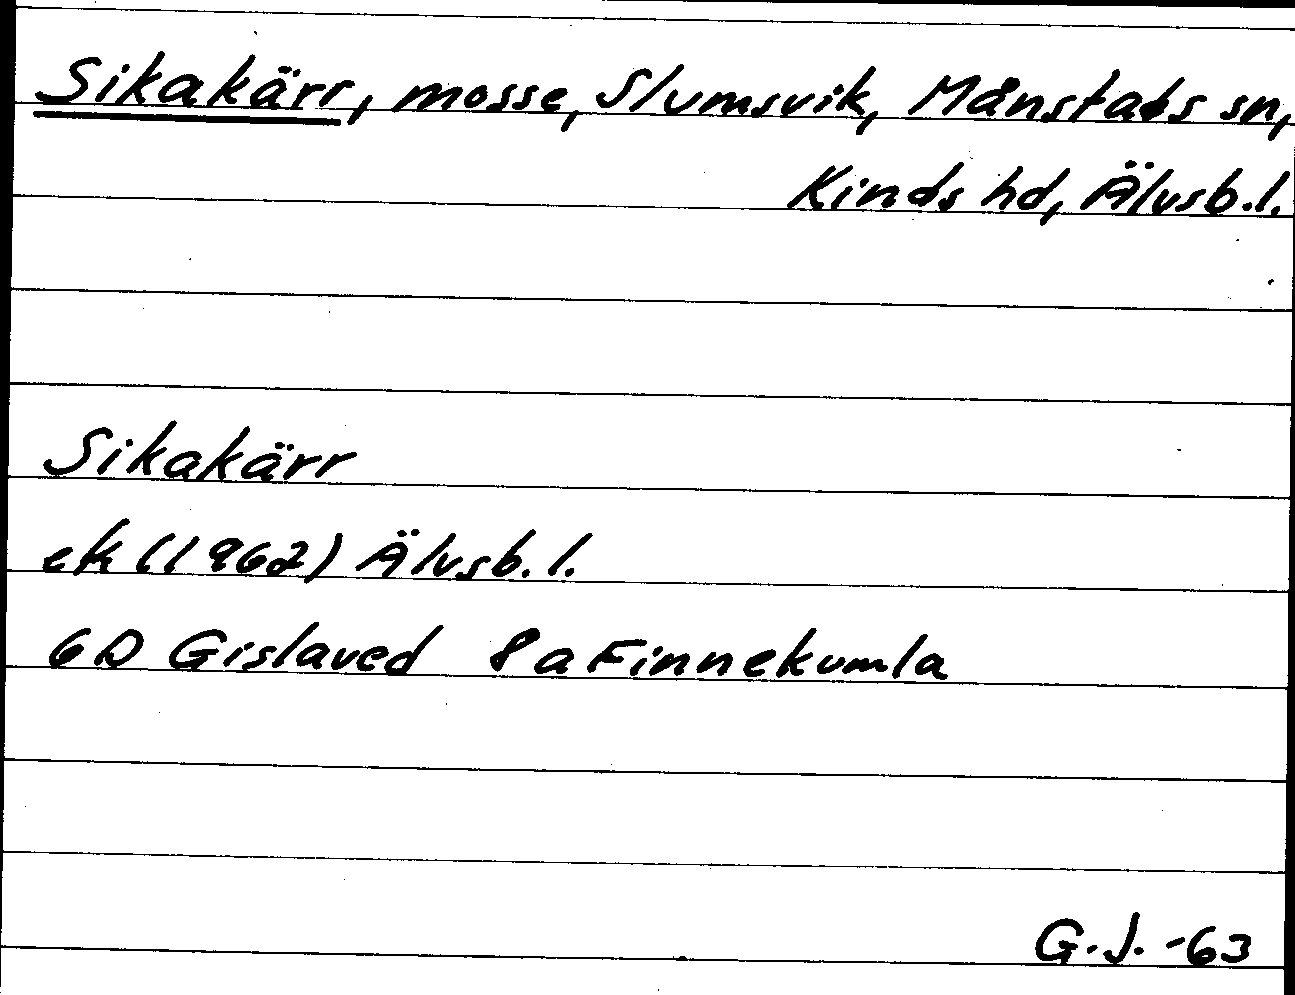 Sikakärr, mosse, Slumsvik, Månstads sn,
Kinds hd, Älvsb.l.
Sikakärr
ek (1962) Älvsb.l.
6D Gislaved 8a Finnekumla
G.J. -63